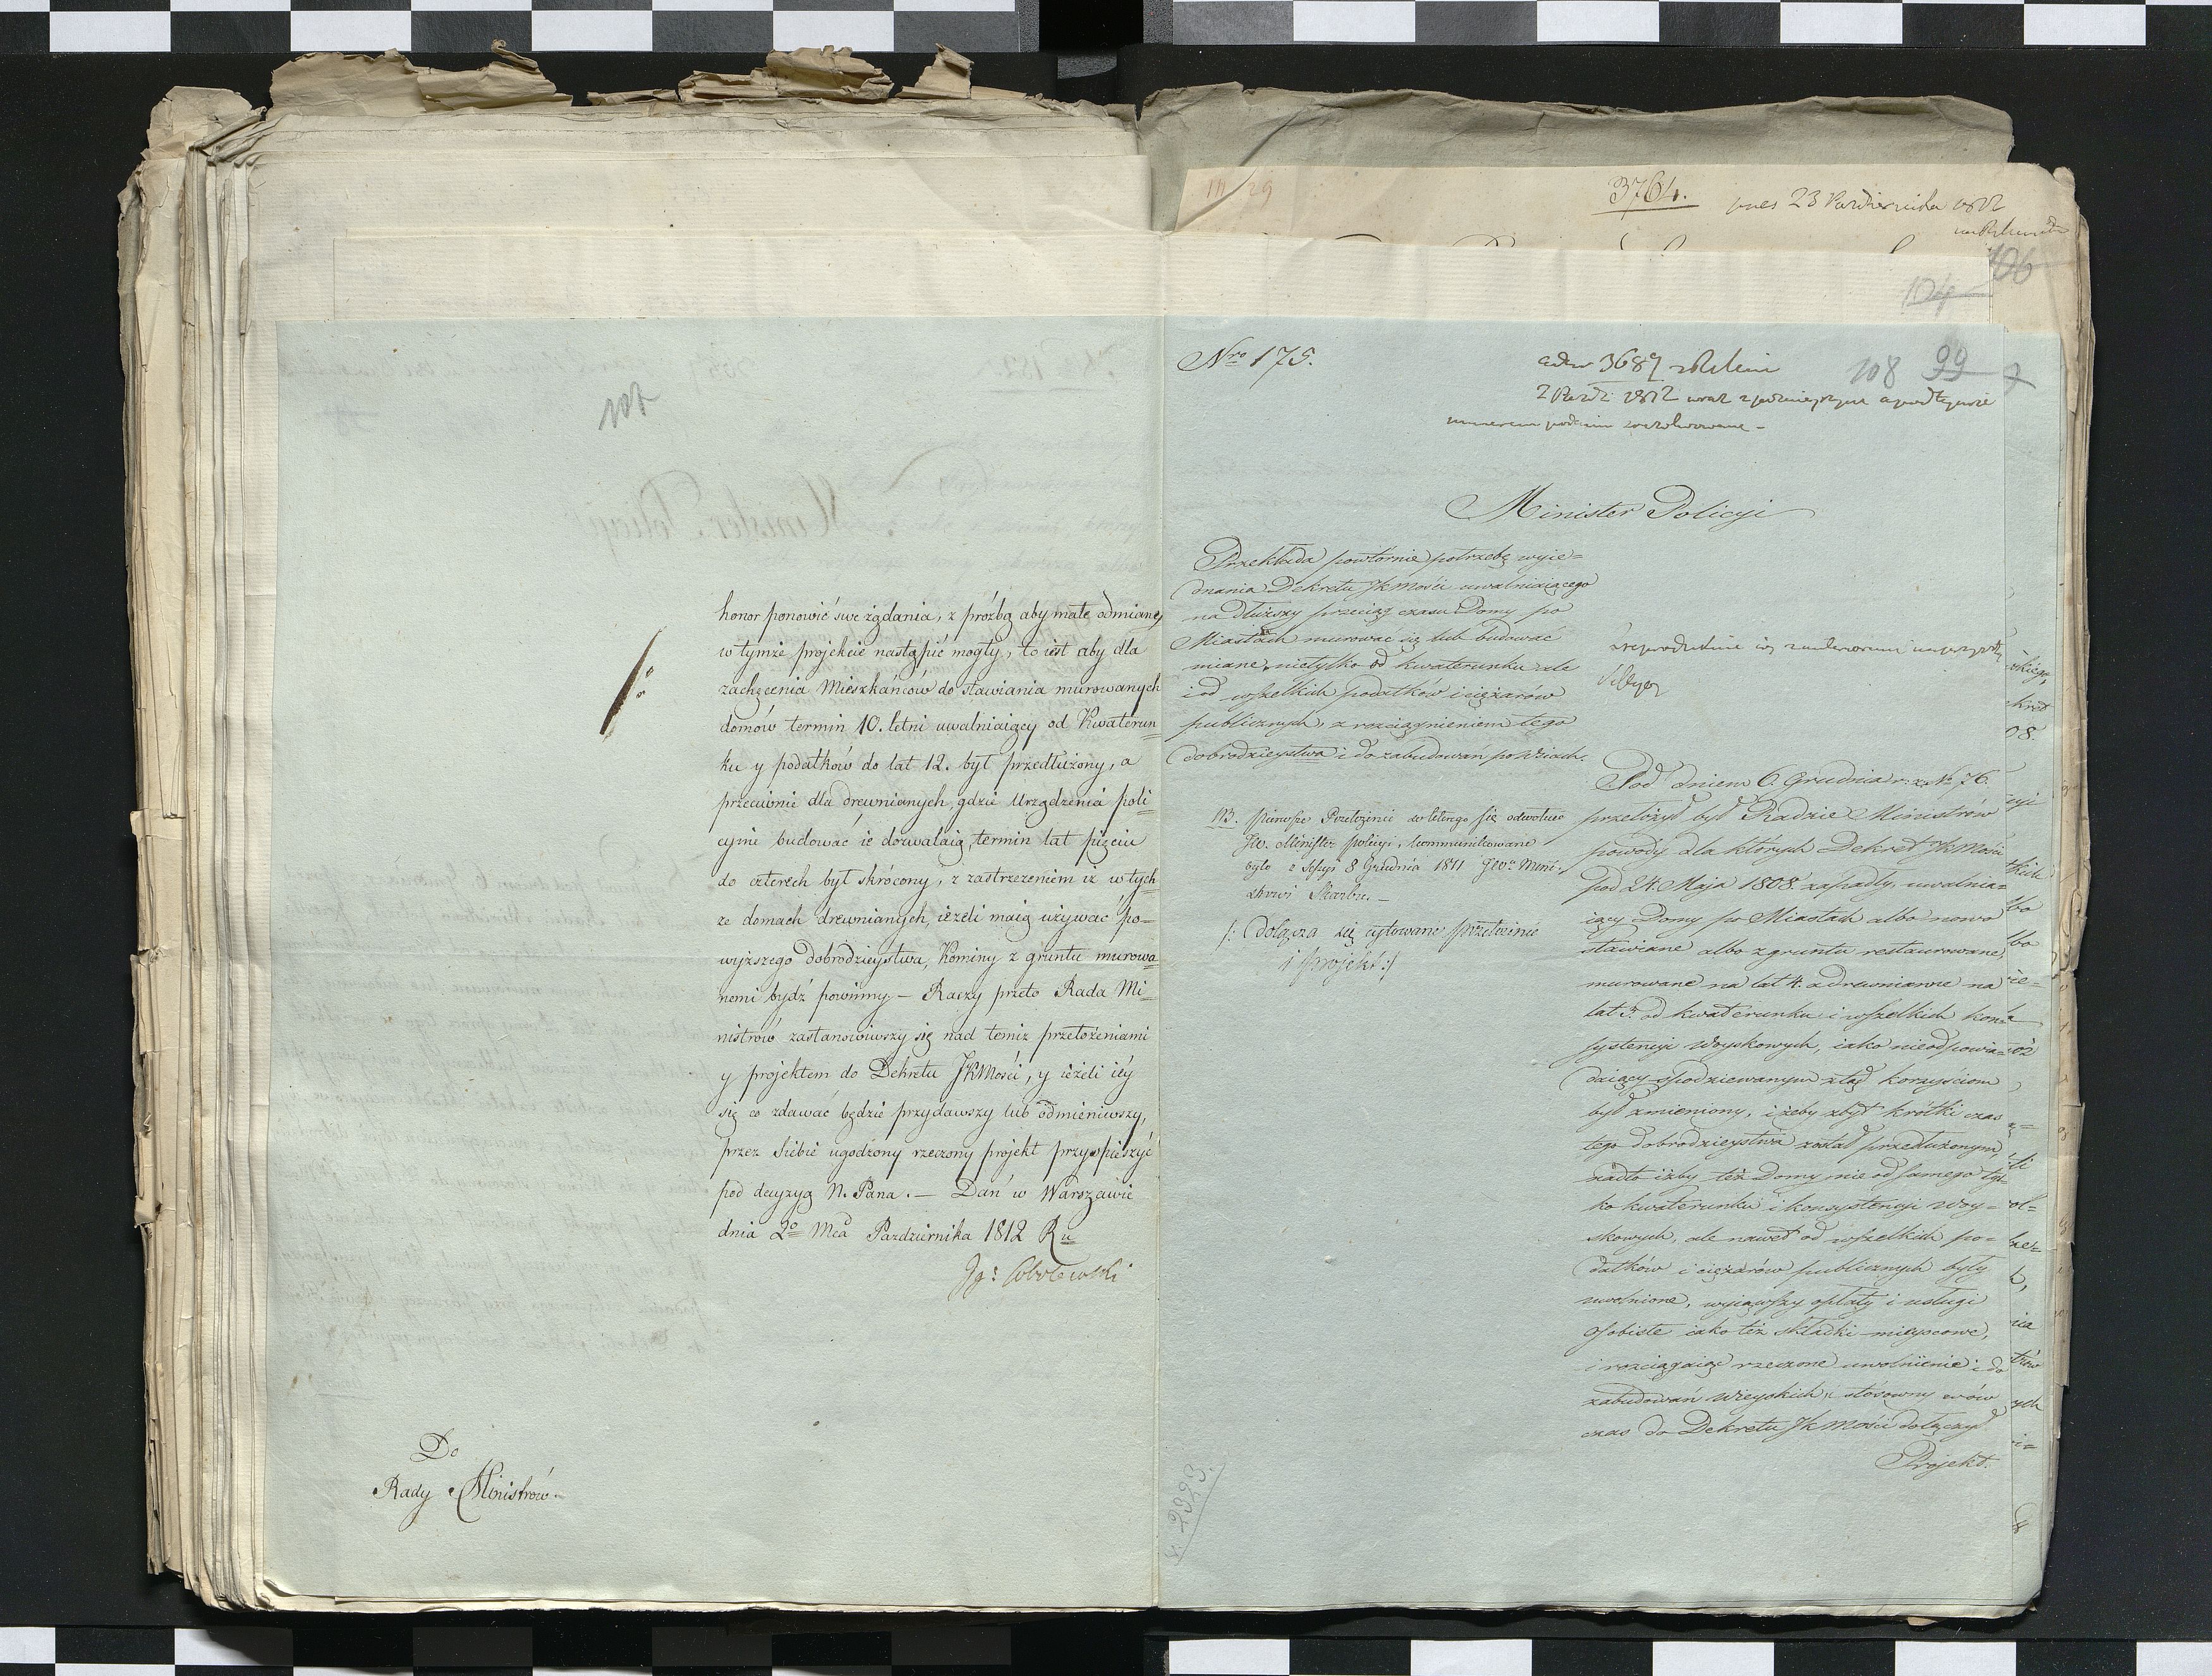 107
honor ponowić swe żądania, z proźbą aby małe odmiany
w tymże projekcie nastąpić mogły, to iest aby dla
zachęcenia Mieszkańców do stawiania murowanych
domów termin 10. letni uwalniaiący od Kwaterun=
ku y podatków do lat 12. był przedłużony, a
przeciwnie dla drewnianych, gdzie Urządzenia poli=
cyine budować ie dozwalaią, termin lat pięciu
do czterech był skrócony, z zastrzeżeniem iż w tych=
że domach drewnianych, ieżeli maią używać po=
wyższego dobrodzieystwa, Kominy z gruntu murowa=
nemi bydź powinny. — Raczy przeto Rada Mi=
nistrów zastanowiwszy się nad temiż przełożeniami
y projektem do Dekretu JKMości, y ieżeli iéy
się co zdawać będzie przydawszy lub odmieniwszy,
przez Siebie ugodzony rzeczony projekt przyspieszyć
pod decyzyą N. Pana. — Dań w Warszawie
dnia 2o Mca Pazdziernika 1812 Ru
Ig: Sobolewski
Do
Rady Ministrów.
3764. 23 Pazdziernika 1812
106
104
Nro 175.
3689
108 99
2 Pazdz: 1812 wraz
numerem
Minister Policyi
Przekłada powtórnie potrzebę wyie=
dnania Dekretu JKMości uwalniaiącego
na dłuższy przeciąg czasu Domy po
Miastach murować się lub budować
miane, nietylko od kwaterunku ale
i od wszelkich podatków i ciężarów
publicznych, z rozciągnieniem tego
dobrodzieystwa i do zabudowań po Wsiach.
NB. pierwsze Przełożenie do którego się odwołuie
JW. Minister policyi, kommunikowane
było z Sessyi 8 Grudnia 1811 JWu Mini=
strowi Skarbu. —
/: Dołącza się cytowane przełożenie
i projekt :/
Pod dniem 6. Grudnia r: z: No 76.
przełożył był Radzie Ministrów
powody dla których Dekret JKMości
pod 24. Maja 1808. zapadły, uwalnia=
iący Domy po Miastach albo nowo
stawiane albo z gruntu restaurowane,
murowane na lat 4. a drewniane na
lat 2. od kwaterunku i wszelkich kon=
systencyi Woyskowych, iako nieodpowia=
daiący spodziewanym ztąd korzyściom
był zmieniony, i żeby zbyt krótki czas
tego dobrodzieystwa został przedłużonym,
nadto iżby też Domy nie od samego tyl=
ko kwaterunku i konsystencyi Woy=
skowych, ale nawet od wszelkich po=
datków i ciężarów publicznych były
uwolnione, wyiąwszy opłaty i usługi
osobiste iako też składki mieyscowe,
i rozciągaiąc rzeczone uwolnienie i do
zabudowań Wieyskich, stósowny wów
czas do Dekretu JKMości dołączył
Projekt.